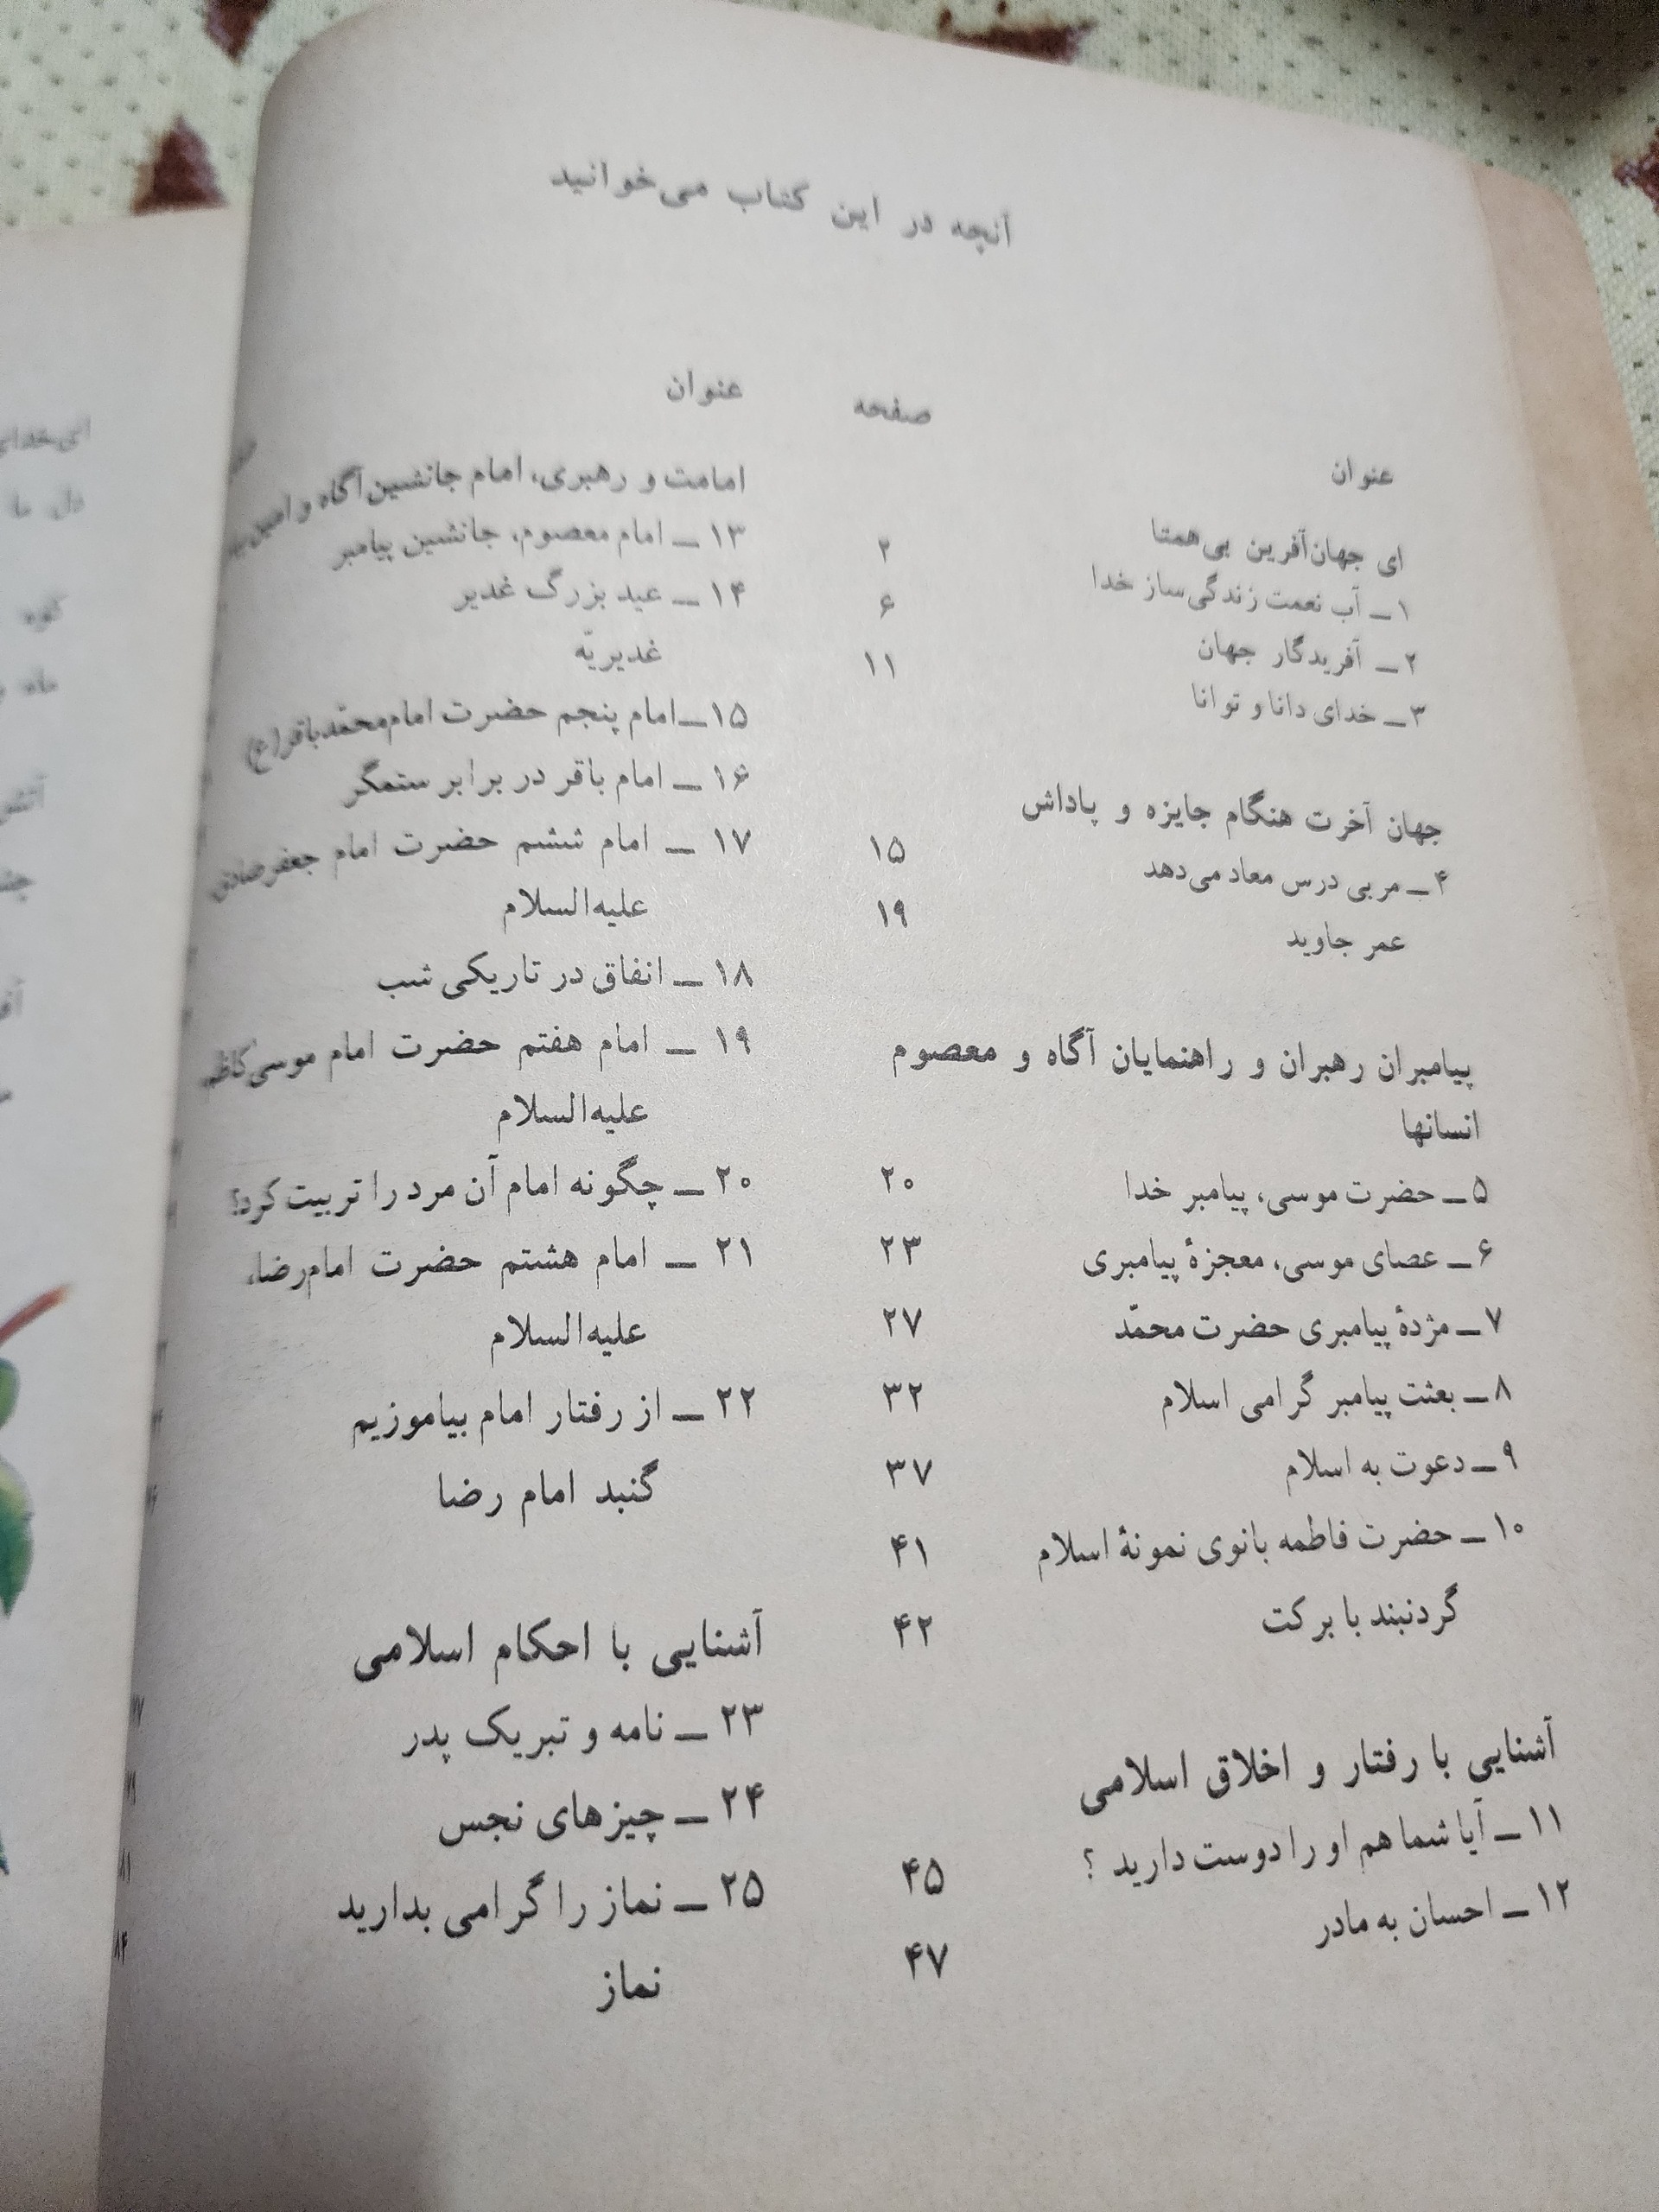 آنچه در این کتاب می‌خوانید
عنوان
صفحه
ای جهان‌آفرین بی‌همتا
۱ــ آب نعمت زندگی‌ساز خدا ۲
۲ــ آفریدگار جهان ۶
۳ــ خدای دانا و توانا ۱۱
جهان آخرت هنگام جایزه و پاداش
۴ــ مربی درس معاد می‌دهد ۱۵
عمر جاوید ۱۹
پیامبران رهبران و راهنمایان آگاه و معصوم
انسانها
۵ــ حضرت موسی، پیامبر خدا ۲۰
۶ــ عصای موسی، معجزهٔ پیامبری ۲۳
۷ــ مژدهٔ پیامبری حضرت محمّد ۲۷
۸ــ بعثت پیامبر گرامی اسلام ۳۲
۹ــ دعوت به اسلام ۳۷
۱۰ــ حضرت فاطمه بانوی نمونهٔ اسلام ۴۱
گردنبند با برکت ۴۲
آشنایی با رفتار و اخلاق اسلامی
۱۱ــ آیا شما هم او را دوست دارید ؟ ۴۵
۱۲ــ احسان به مادر ۴۷
عنوان
امامت و رهبری، امام جانشین آگاه و امین
۱۳ــ امام معصوم، جانشین پیامبر
۱۴ــ عید بزرگ غدیر
غدیریّه
۱۵ــ امام پنجم حضرت امام‌محمّدباقر(ع)
۱۶ــ امام باقر در برابر ستمگر
۱۷ــ امام ششم حضرت امام جعفرصادق
علیه‌السلام
۱۸ــ انفاق در تاریکی شب
۱۹ــ امام هفتم حضرت امام موسی‌کاظم
علیه‌السلام
۲۰ــ چگونه امام آن مرد را تربیت کرد؟
۲۱ــ امام هشتم حضرت امام‌رضا،
علیه‌السلام
۲۲ــ از رفتار امام بیاموزیم
گنبد امام رضا
آشنایی با احکام اسلامی
۲۳ــ نامه و تبریک پدر
۲۴ــ چیزهای نجس
۲۵ــ نماز را گرامی بدارید
نماز
ای‌خدای
دل ما
کوه
ماه